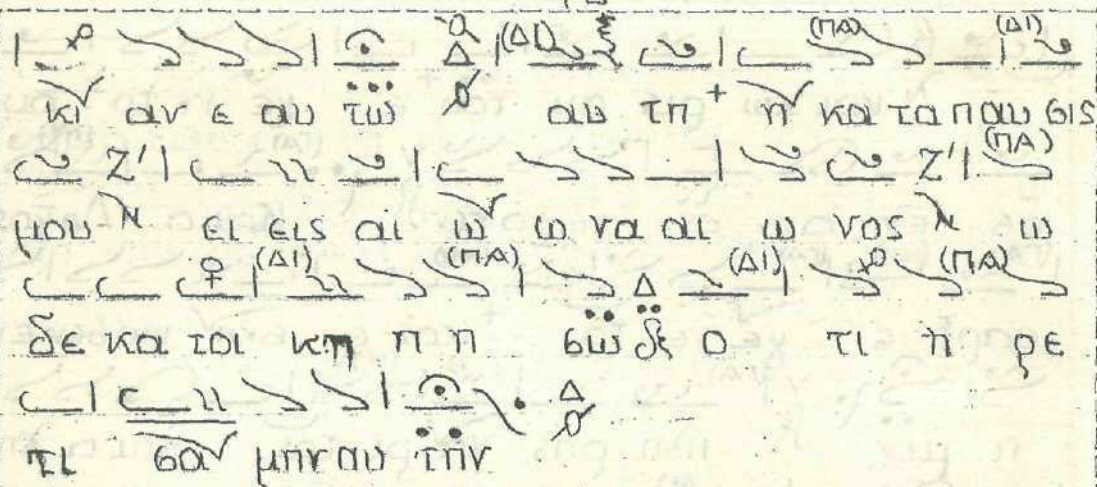 Δ (ΔΙ) (ΠΑ) (ΔΙ)
κι αν ε αυ τω αυ τη η κα τα παυ σις
Ζ' Ζ' (ΠΑ)
μου ει εις αι ω ω να αι ω νος ω
(ΔΙ) (ΠΑ) Δ (ΔΙ) (ΠΑ)
δε κα τοι κη η η σω δε ο τι η ρε
Δ
τι σα μην αυ την